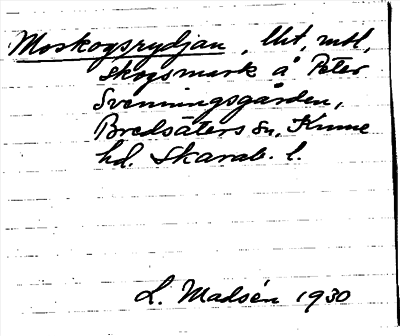 Moskogsrydjan, lht, mtl,
skogsmark å Peter
Svenningsgården,
Bredsäters sn, Kinne
hd. Skarab. l.
L. Madsén 1930